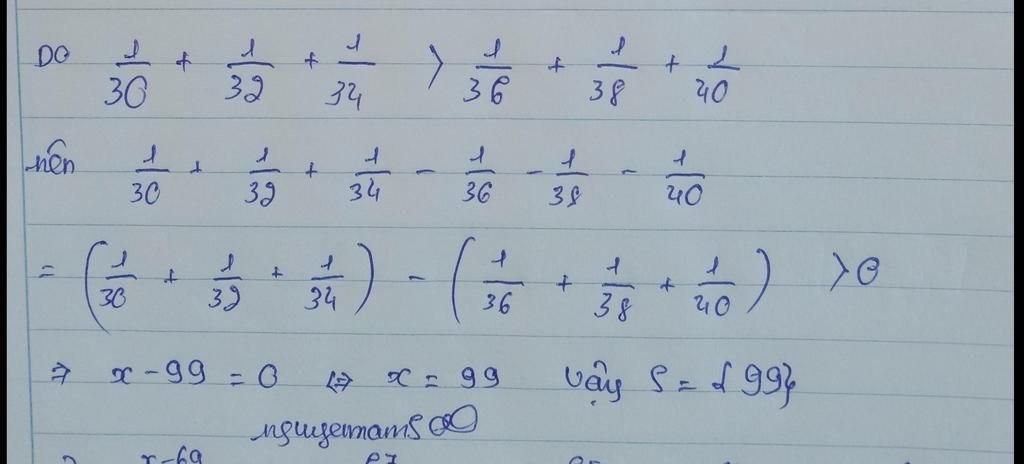 Do 1/30 + 1/32 + 1/34 > 1/36 + 1/38 + 1/40
nên 1/30 + 1/32 + 1/34 - 1/36 - 1/38 - 1/40
= (1/30 + 1/32 + 1/34) - (1/36 + 1/38 + 1/40) > 0
⇒ x - 99 = 0 ⇔ x = 99 Vậy S = {99}
x-69